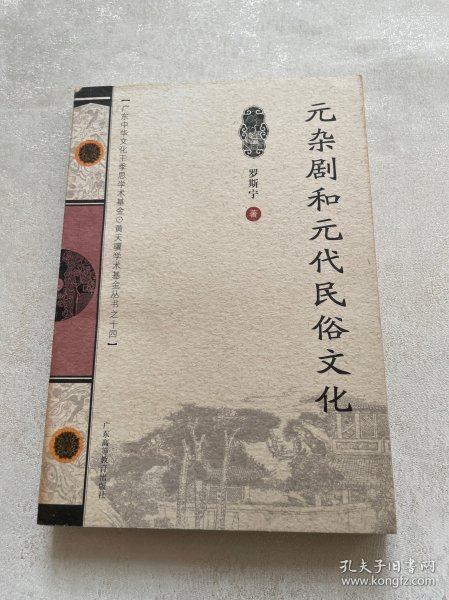 元杂剧和元代民俗文化
罗斯宁
著
【广东中华文化王季思学术基金⊙黄天骥学术基金丛书之十四】
广东高等教育出版社
孔夫子旧书网
www.kongfz.com